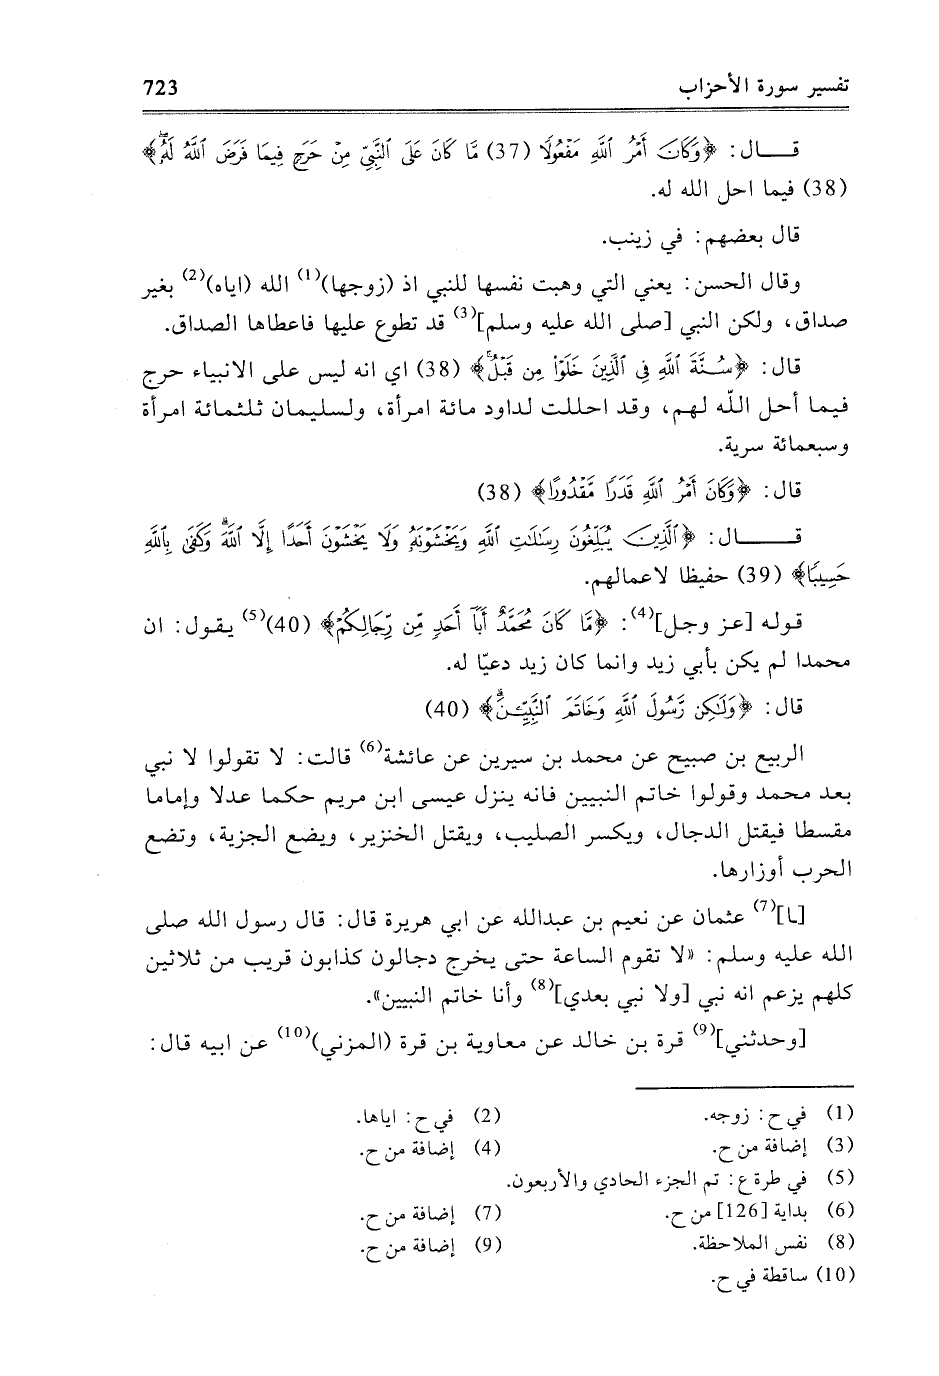 تفسير سورة الأحزاب 723
قـــال: ﴿وَكَانَ أَمْرُ ٱللَّهِ مَفْعُولًا (37) مَّا كَانَ عَلَى ٱلنَّبِيِّ مِنْ حَرَجٍ فِيمَا فَرَضَ ٱللَّهُ لَهُۥ﴾
(38) فيما احل الله له.
قال بعضهم: في زينب.
وقال الحسن: يعني التي وهبت نفسها للنبي اذ (زوجها)(1) الله (اياه)(2) بغير
صداق، ولكن النبي [صلى الله عليه وسلم](3) قد تطوع عليها فاعطاها الصداق.
قال: ﴿سُنَّةَ ٱللَّهِ فِى ٱلَّذِينَ خَلَوْا۟ مِن قَبْلُ﴾ (38) اي انه ليس على الانبياء حرج
فيما أحل اللّه لهم، وقد احللت لداود مائة امرأة، ولسليمان ثلثمائة امرأة
وسبعمائة سرية.
قال: ﴿وَكَانَ أَمْرُ ٱللَّهِ قَدَرًا مَّقْدُورًا﴾ (38)
قـــــال: ﴿ٱلَّذِينَ يُبَلِّغُونَ رِسَٰلَٰتِ ٱللَّهِ وَيَخْشَوْنَهُۥ وَلَا يَخْشَوْنَ أَحَدًا إِلَّا ٱللَّهَ وَكَفَىٰ بِٱللَّهِ
حَسِيبًا﴾ (39) حفيظا لاعمالهم.
قوله [عز وجل](4): ﴿مَّا كَانَ مُحَمَّدٌ أَبَآ أَحَدٍ مِّن رِّجَالِكُمْ﴾ (40)(5) يقول: ان
محمدا لم يكن بأبي زيد وانما كان زيد دعيّا له.
قال: ﴿وَلَٰكِن رَّسُولَ ٱللَّهِ وَخَاتَمَ ٱلنَّبِيِّـۧنَ﴾ (40)
الربيع بن صبيح عن محمد بن سيرين عن عائشة(6) قالت: لا تقولوا لا نبي
بعد محمد وقولوا خاتم النبيين فانه ينزل عيسى ابن مريم حكما عدلا وإماما
مقسطا فيقتل الدجال، ويكسر الصليب، ويقتل الخنزير، ويضع الجزية، وتضع
الحرب أوزارها.
[ـا](7) عثمان عن نعيم بن عبدالله عن ابي هريرة قال: قال رسول الله صلى
الله عليه وسلم: «لا تقوم الساعة حتى يخرج دجالون كذابون قريب من ثلاثين
كلهم يزعم انه نبي [ولا نبي بعدي](8) وأنا خاتم النبيين».
[وحدثني](9) قرة بن خالد عن معاوية بن قرة (المزني)(10) عن ابيه قال:
(1) في ح: زوجه. (2) في ح: اياها.
(3) إضافة من ح. (4) إضافة من ح.
(5) في طرة ع: تم الجزء الحادي والأربعون.
(6) بداية [126] من ح. (7) إضافة من ح.
(8) نفس الملاحظة. (9) إضافة من ح.
(10) ساقطة في ح.